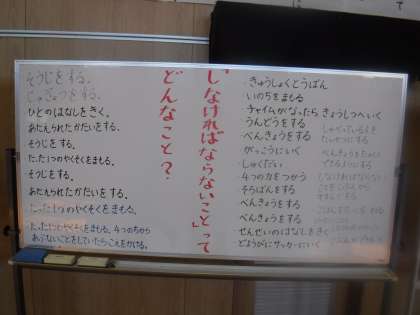 「しなければならないこと」って
どんなこと？
そうじをする。
じゅぎょうをする。
ひとのはなしをきく。
あたえられたかだいをする。
そうじをする。
たった1つのやくそくをまもる。
そうじをする。
あたえられたかだいをする。
たった1つのやくそくをまもる。
たった1つのやくそくをまもる。4つのちから
あぶないことをしていたらこえをかける。
・きゅうしょくとうばん
いのちをまもる
チャイムがなったらきょうしつへいく
うんどうをする
べんきょうをする
がっこうにいく
しゅくだい
4つの力をつかう
そうばんをする
べんきょうをする
べんきょうをする
せんせいのはなしをきく
どようびにサッカーにいく